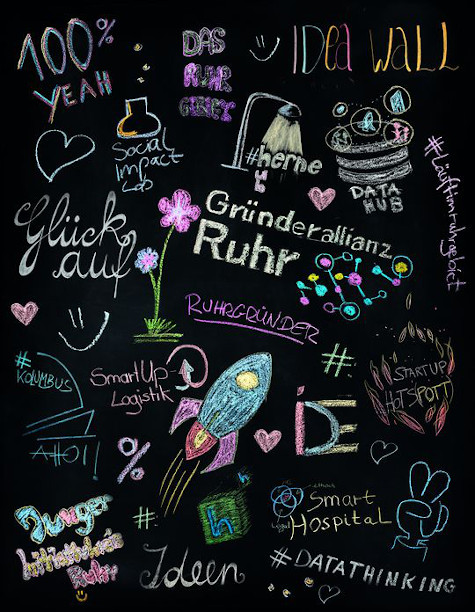 100%
YEAH
DAS
RUHR
IDEA WALL
Social
Impact
Lab
#herne
DATA
HUB
#Läuftimruhrgebiet
Glück
auf
Gründerallianz
Ruhr
RUHRGRÜNDER
#
KOLUMBUS
AHOI!
SmartUp-
Logistik
#
STARTUP
HOTSPOTT
%
IDE
Junger
Initiativkreis
Ruhr
#
In
Ideen
Smart
Hospital
#DATATHINKING